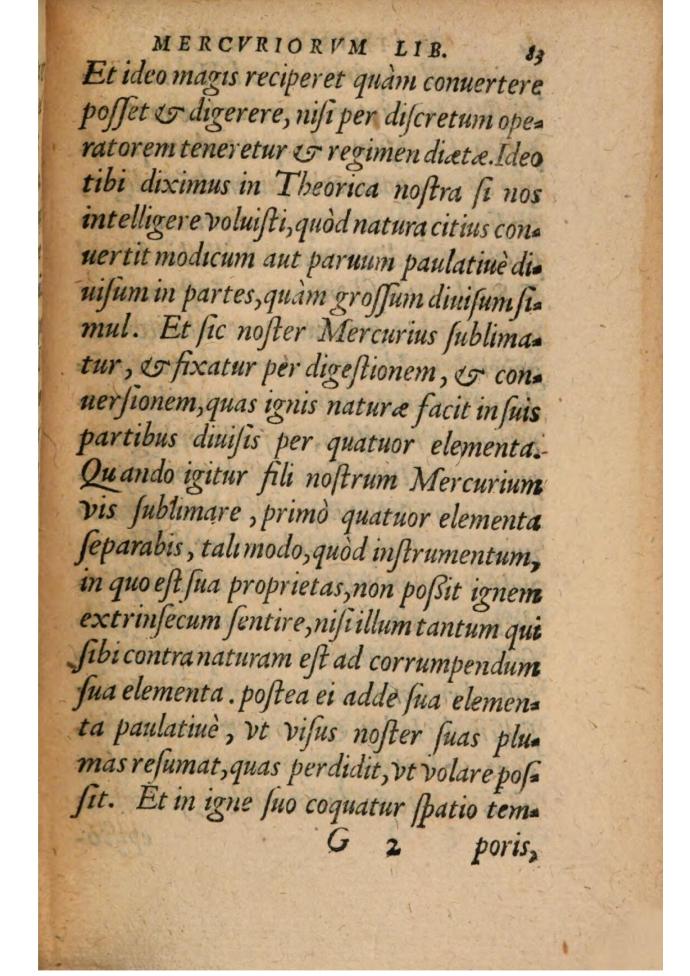 MERCVRIORVM LIB. 83
Et ideo magis reciperet quàm conuertere
poſſet & digerere, niſi per diſcretum ope-
ratorem teneretur & regimen diætæ. Ideo
tibi diximus in Theorica noſtra ſi nos
intelligere voluiſti, quòd natura citius con-
uertit modicum aut paruum paulatiuè di-
uiſum in partes, quàm groſſum diuiſum ſi-
mul. Et ſic noſter Mercurius ſublima-
tur, & fixatur per digeſtionem, & con-
uerſionem, quas ignis naturæ facit in ſuis
partibus diuiſis per quatuor elementa.
Quando igitur fili noſtrum Mercurium
vis ſublimare, primò quatuor elementa
ſeparabis, tali modo, quòd inſtrumentum,
in quo eſt ſua proprietas, non poßit ignem
extrinſecum ſentire, niſi illum tantum qui
ſibi contra naturam eſt ad corrumpendum
ſua elementa. poſtea ei adde ſua elemen-
ta paulatiuè, vt viſus noſter ſuas plu-
mas reſumat, quas perdidit, vt volare poſ-
ſit. Et in igne ſuo coquatur ſpatio tem-
G 2 poris,